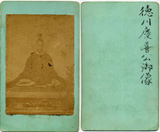 徳川慶喜公御像